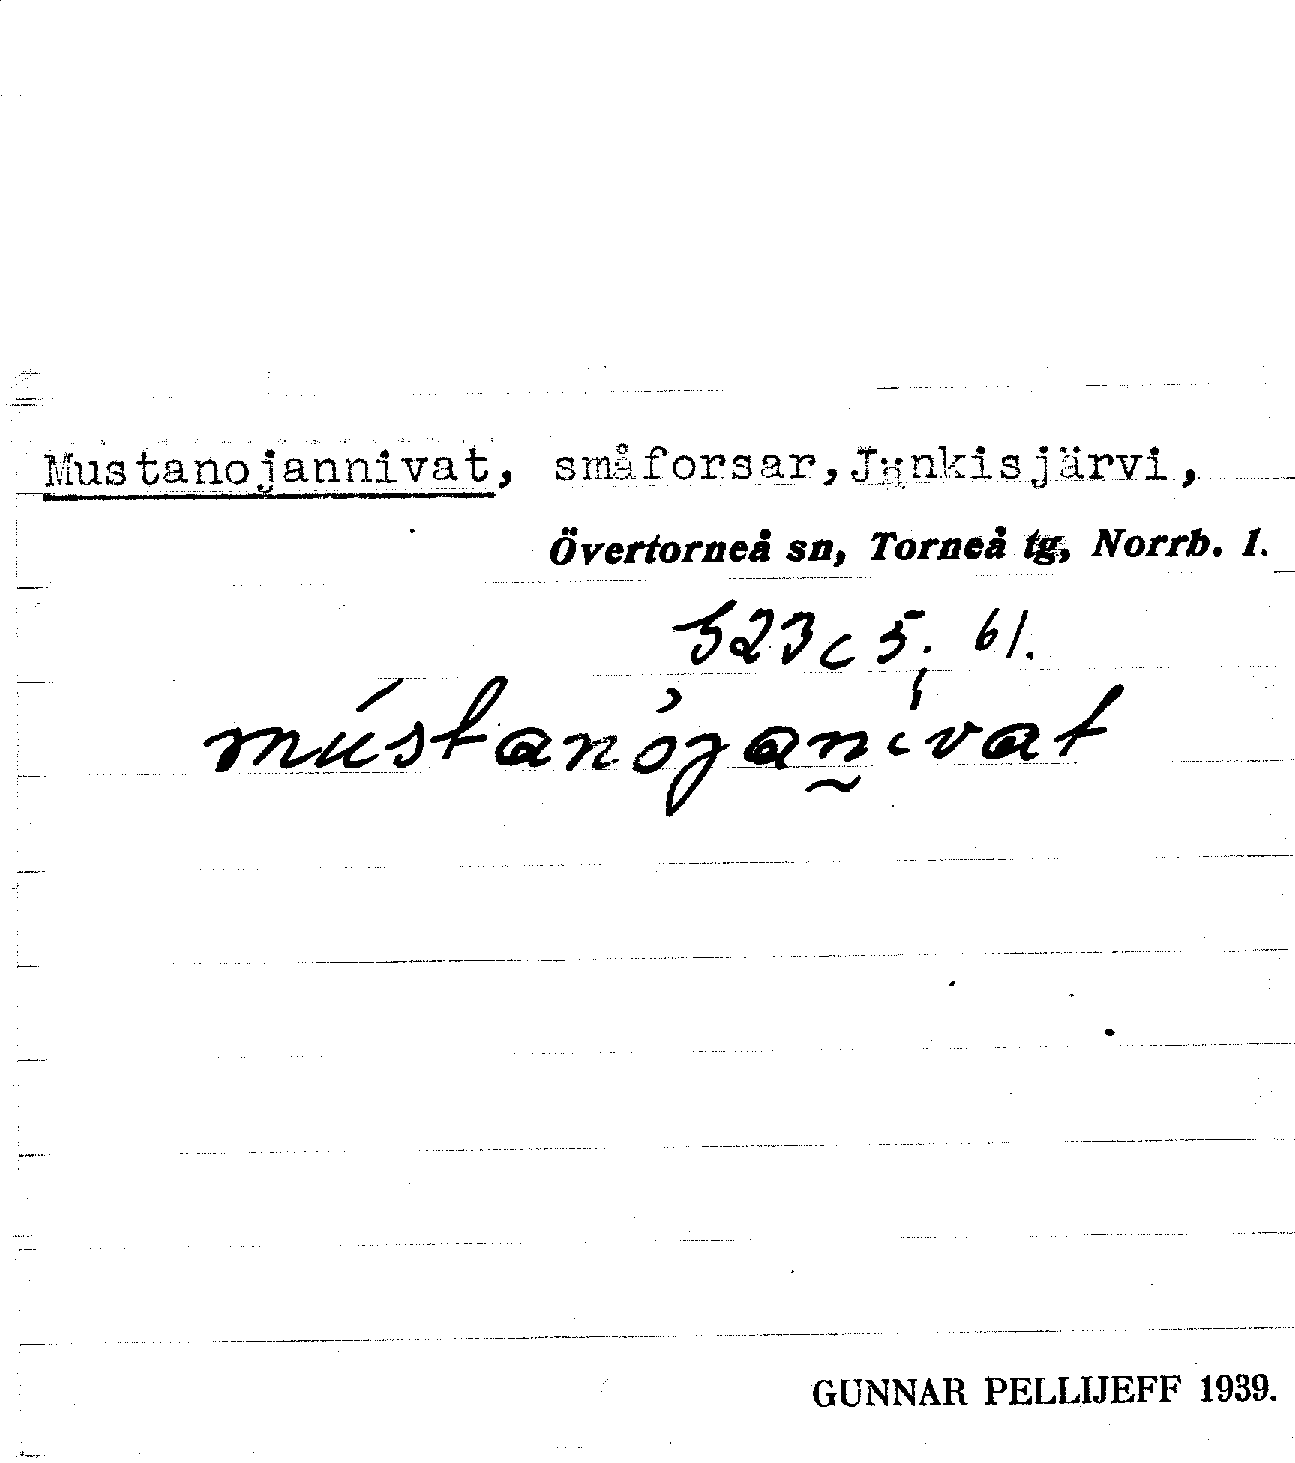 Mustanojannivat, småforsar, Jänkisjärvi,
Övertorneå sn, Torneå tg, Norrb. l.
323 c 5. 61.
mústanòjanívat
GUNNAR PELLIJEFF 1939.